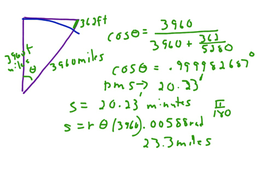 362ft
3960 miles
θ
3960 miles
cos θ = 3960 / 3960 + 362/5280
cos θ = .999982687°
DMS → 20.23'
s = 20.23' minutes π/180
s = r θ (3960) .00588 rad
23.3 miles